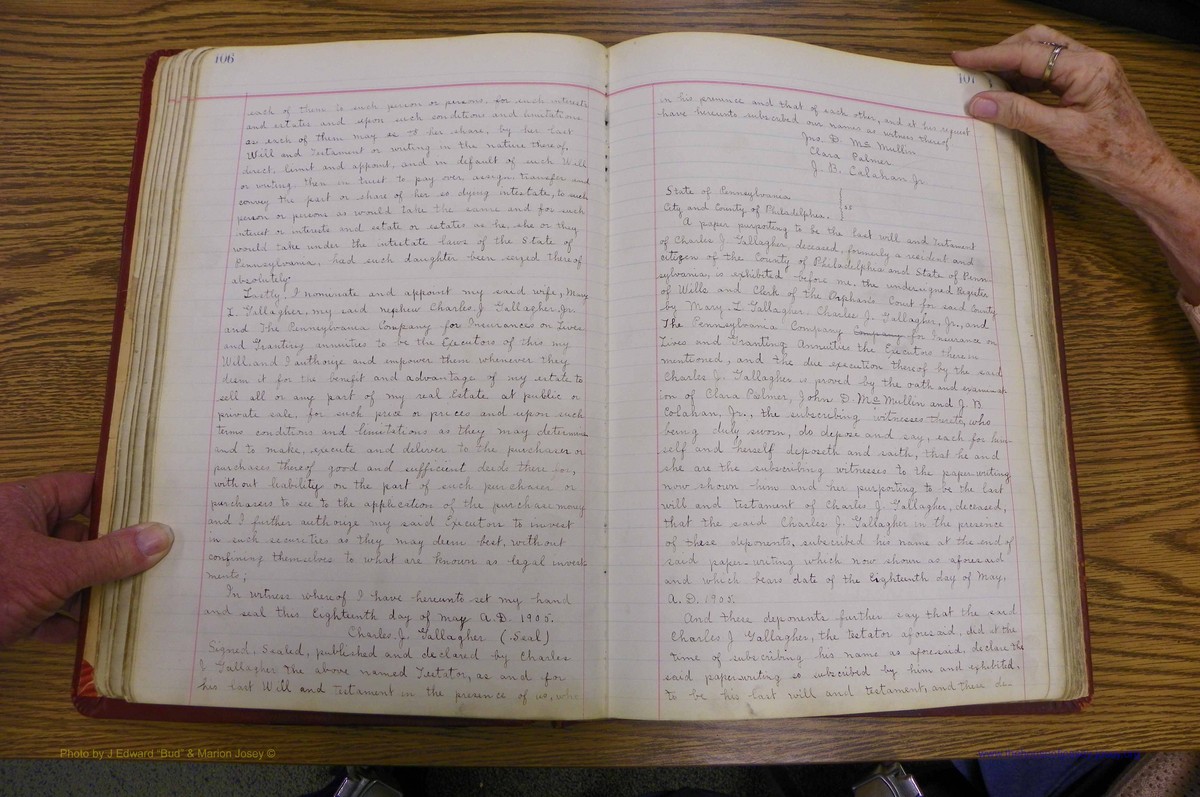 106
each of them to such person or persons, for such interests
and estates and upon such conditions and limitations
as each of them may as to her share, by her last
Will and Testament or writing in the nature thereof,
direct, limit and appoint, and in default of such Will
or writing, then in trust to pay over, assign, transfer and
convey the part or share of her so dying intestate, to such
person or persons as would take the same and for such
interest or interests and estate or estates as he, she or they
would take under the intestate laws of the State of
Pennsylvania, had such daughter been seized thereof
absolutely.
Lastly, I nominate and appoint my said wife, Mary
L. Gallagher, my said nephew Charles J. Gallagher, Jr.
and The Pennsylvania Company for Insurances on Lives
and Granting annuities to be the Executors of this my
Will, and I authorize and empower them whenever they
deem it for the benefit and advantage of my estate to
sell all or any part of my real Estate at public or
private sale, for such price or prices and upon such
terms conditions and limitations as they may determine
and to make, execute and deliver to the purchaser or
purchasers thereof good and sufficient deeds there for,
without liability on the part of such purchaser or
purchasers to see to the application of the purchase money
and I further authorize my said Executors to invest
in such securities as they may deem best, without
confining themselves to what are known as legal invest-
ments;
In witness whereof I have hereunto set my hand
and seal this Eighteenth day of may A.D. 1905.
Charles. J. Gallagher (Seal)
Signed, Sealed, published and declared by Charles
J. Gallagher the above named Testator, as and for
his last Will and Testament in the presence of us, who
107
in his presence and that of each other, and at his request
have hereunto subscribed our names as witness thereof
Jno. D. McMullin
Clara Palmer
J. B. Colahan Jr.
State of Pennsylvania
City and County of Philadelphia. ss
A paper purporting to be the last will and testament
of Charles J. Gallagher, deceased, formerly a resident and
citizen of the County of Philadelphia and State of Penn-
sylvania, is exhibited before me, the undersigned Register
of Wills and Clerk of the Orphans Court for said County
by Mary L. Gallagher, Charles J. Gallagher, Jr., and
The Pennsylvania Company Company for Insurance on
Lives and Granting Annuities the Executors therein
mentioned, and the due execution thereof by the said
Charles J. Gallagher is proved by the oath and examinat-
ion of Clara Palmer, John D. McMullin and J. B.
Colahan, Jr., the subscribing witnesses thereto, who
being duly sworn, do depose and say, each for him-
self and herself deposeth and saith, that he and
she are the subscribing witnesses to the paper writing
now shown him and her purporting to be the last
will and testament of Charles J. Gallagher, deceased,
that the said Charles J. Gallagher in the presence
of these deponents, subscribed his name at the end of
said paper-writing which now shown as aforesaid
and which bears date of the Eighteenth day of May,
A. D. 1905.
And these deponents further say that the said
Charles J. Gallagher, the testator aforesaid, did at the
time of subscribing his name as aforesaid, declare the
said paper writing so subscribed by him and exhibited,
to be his last will and testament, and these de-
Photo by J Edward "Bud" & Marion Josey ©